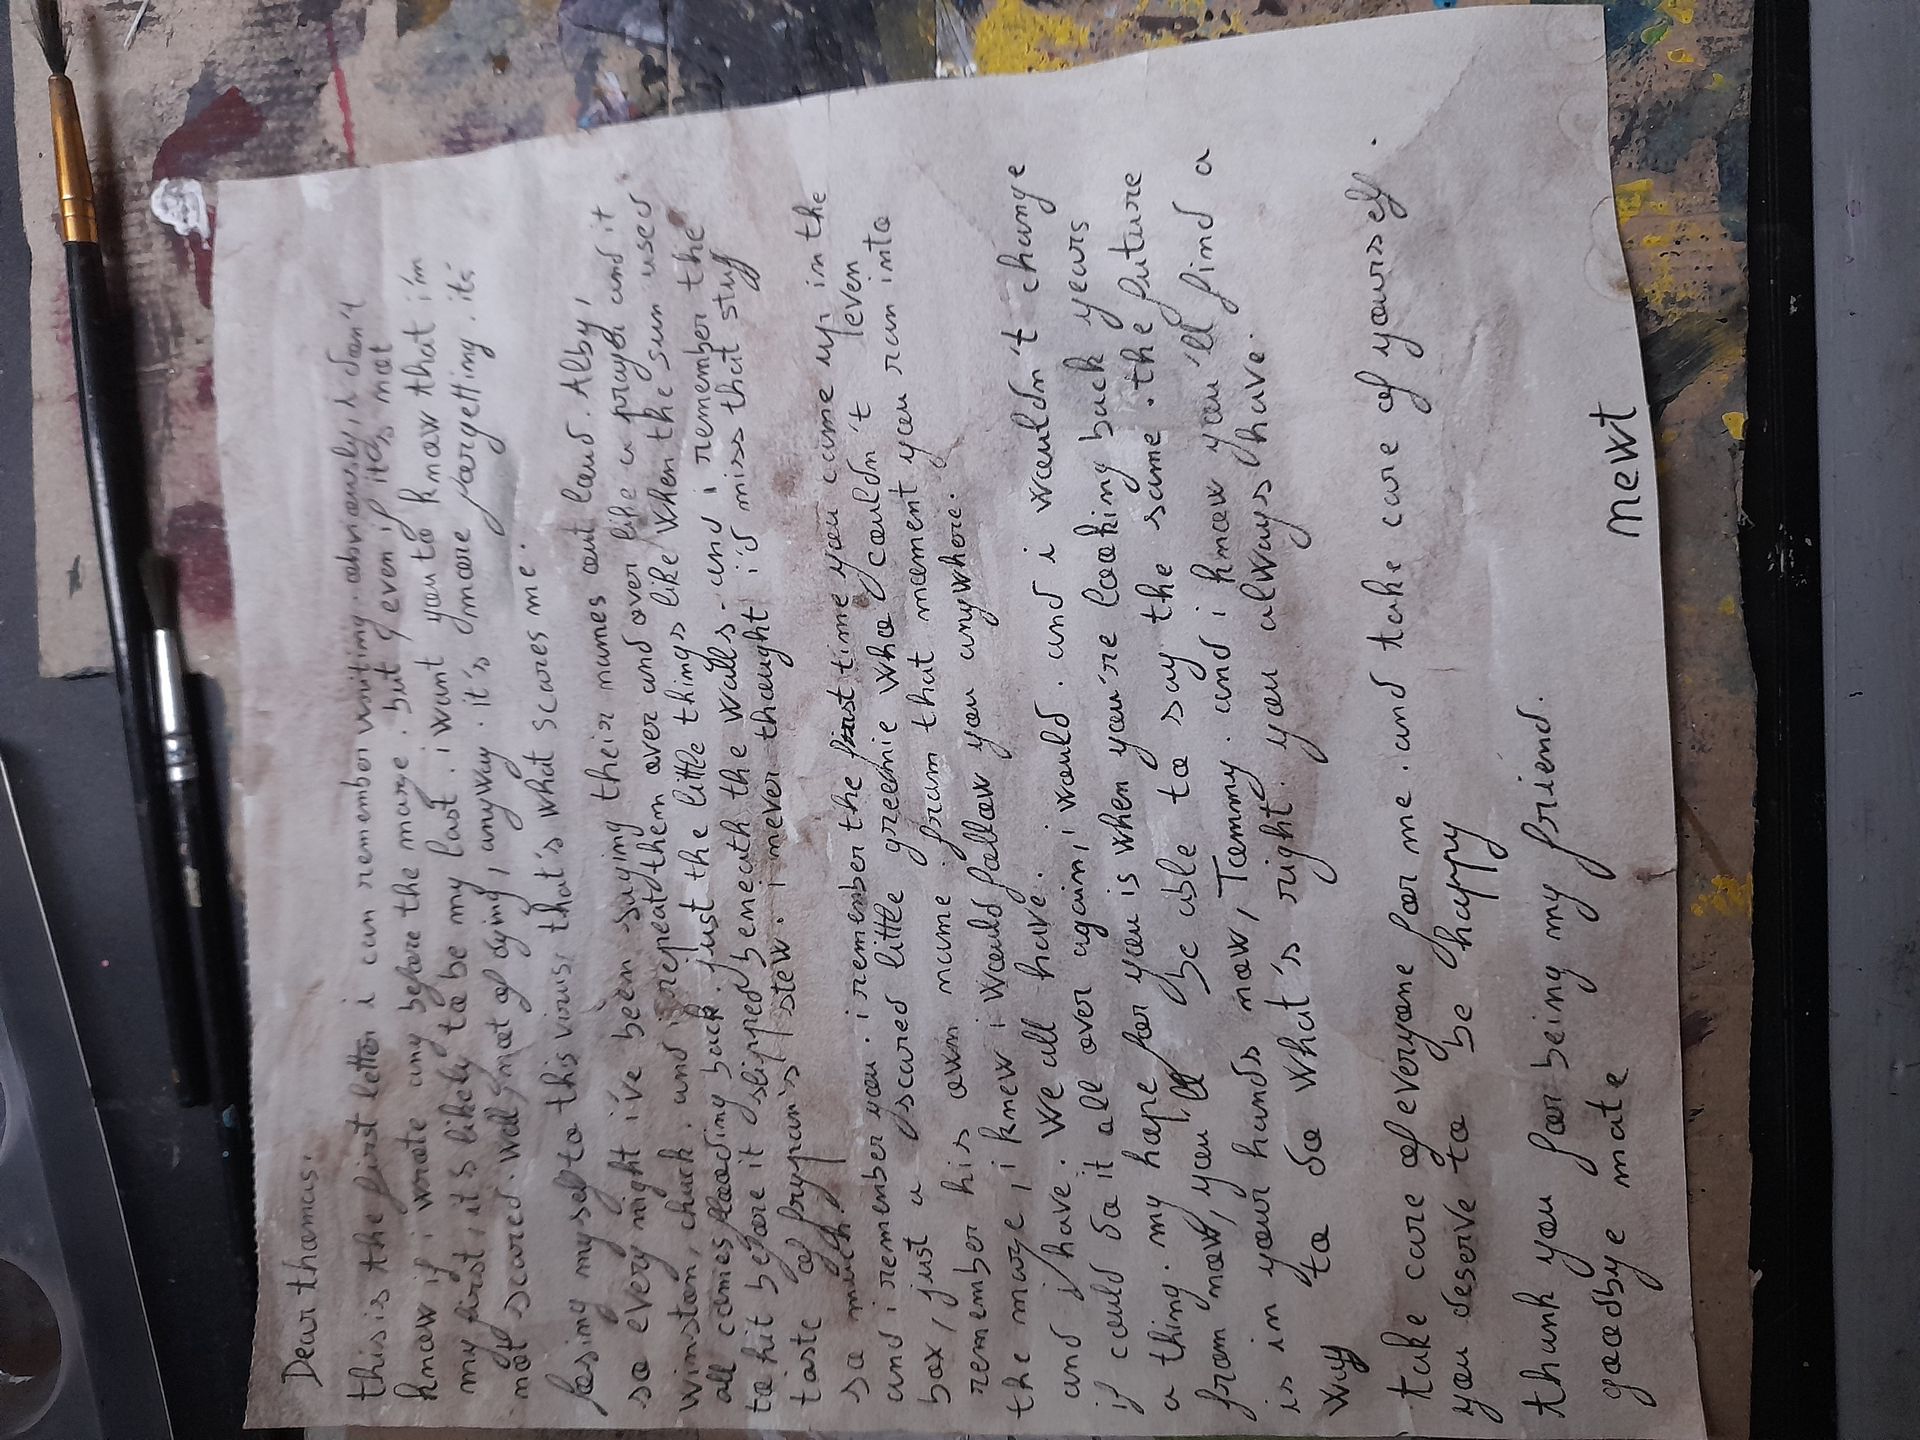 Dear thomas,
this is the first letter i can remember writing. obviously, i don't
know if i wrote any before the maze. but even if its not
my first, it's likely to be my last. i want you to know that i'm
not scared. well, not of dying, anyway. it's more forgetting. its
losing myself to this virus, that's what scares me.
so every night i've been saying their names out loud. Alby,
winston, chuck. and i repeat them over and over like a prayer and it
all comes flooding back. just the little things like when the sun used
to hit before it slipped beneath the walls. and i remember the
taste of frypan's stew. i never thought i'd miss that stuf
so much.
and i remember you. i remember the first time you came up in the
box, just a scared little greenie who couldn't even
remember his own name. from that moment you run into
the maze, i knew i would follow you anywhere.
and i have. we all have.
if could do it all over again, i would. and i wouldn't change
a thing. my hope for you is when you're looking back years
from now, you'll be able to say the same. the future
is in your hands now, Tommy. and i know you'll find a
way to do what's right. you always have.
take care of everyone for me. and take care of yourself.
you deserve to be happy
thank you for being my friend.
goodbye mate
newt